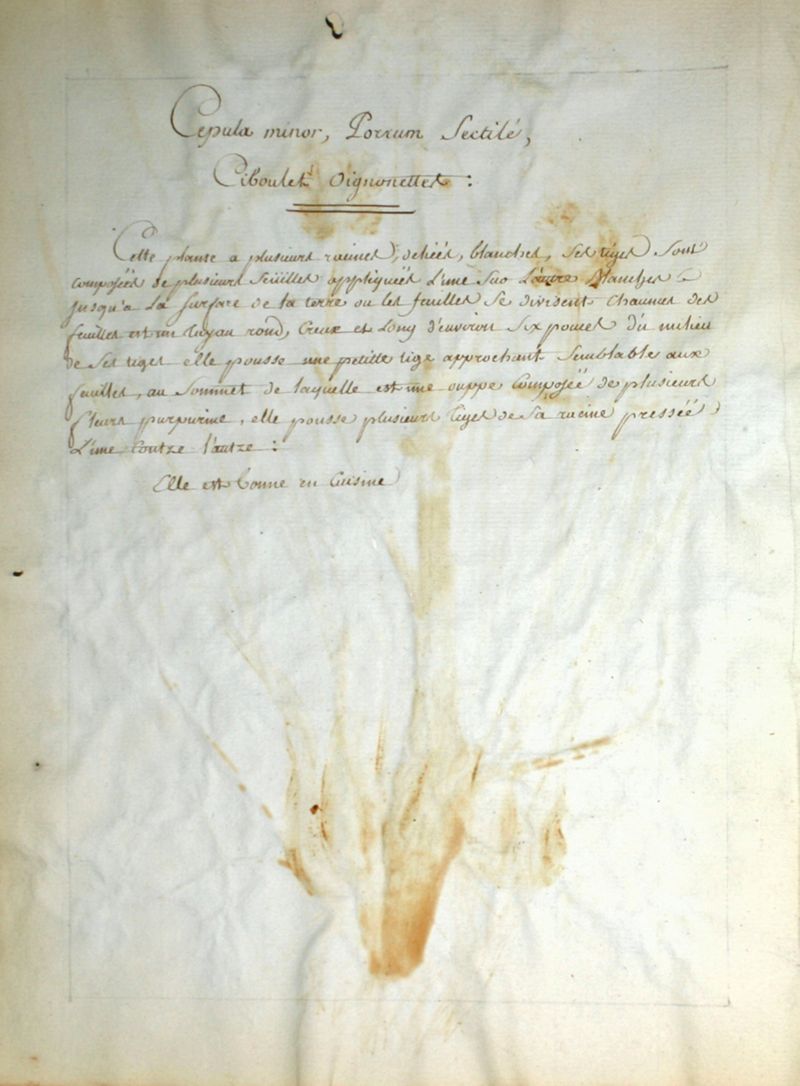 Cepula minor, Porrum Sectilé,
Ciboulet Oignonettes :
Cette plante a plusieurs raines, deliées, blanches, ses tiges sont
composéés de plusieurs feuilles appliquéés L'une sur L'autre blanches
jusqu'a La surface de la terre ou les feuilles se divisent chaunes des
feuilles est un tuyau rond, creux et Long d'environ six pouces du milieu
de ses tiges elle pousse une petitte tige approchant semblable aux
feuilles, au sommet de laquelle est une ouppe composéé de plusieurs
fleurs purpurine, elle pousse plusieurs tiges de sa racine presséé
L'une contre l'autre :
Elle est bonne en Cuisine